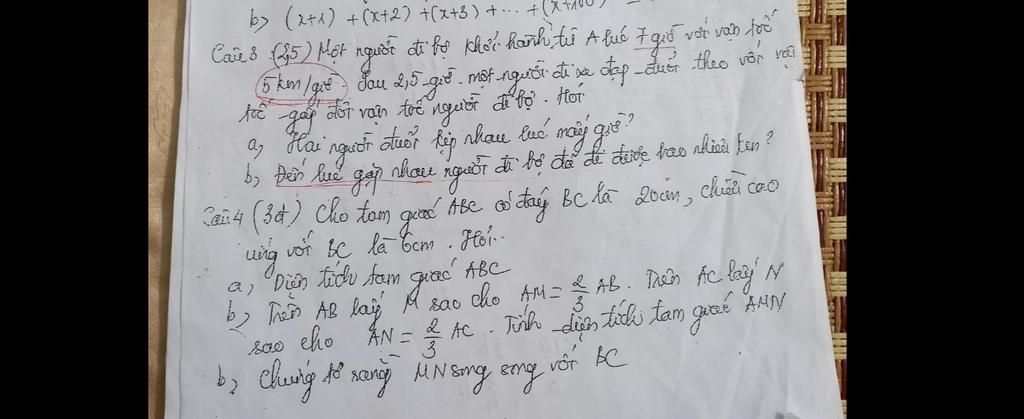 b) (x+1) + (x+2) + (x+3) + ... + (x+100) =
Câu 3 (2,5) Một người đi bộ khởi hành từ A lúc 7 giờ với vận tốc
5 km/giờ. Sau 2,5 giờ một người đi xe đạp đuổi theo với vận
tốc gấp đôi vận tốc người đi bộ. Hỏi
a, Hai người đuổi kịp nhau lúc mấy giờ?
b, Đến lúc gặp nhau người đi bộ đã đi được bao nhiêu km?
Câu 4 (3đ) Cho tam giác ABC có đáy BC là 20cm, chiều cao
ứng với BC là 6cm. Hỏi..
a, Diện tích tam giác ABC
b, Trên AB lấy M sao cho AM = 2/3 AB. Trên AC lấy N
sao cho AN = 2/3 AC. Tính diện tích tam giác AMN
b, Chứng tỏ rằng MN song song với BC